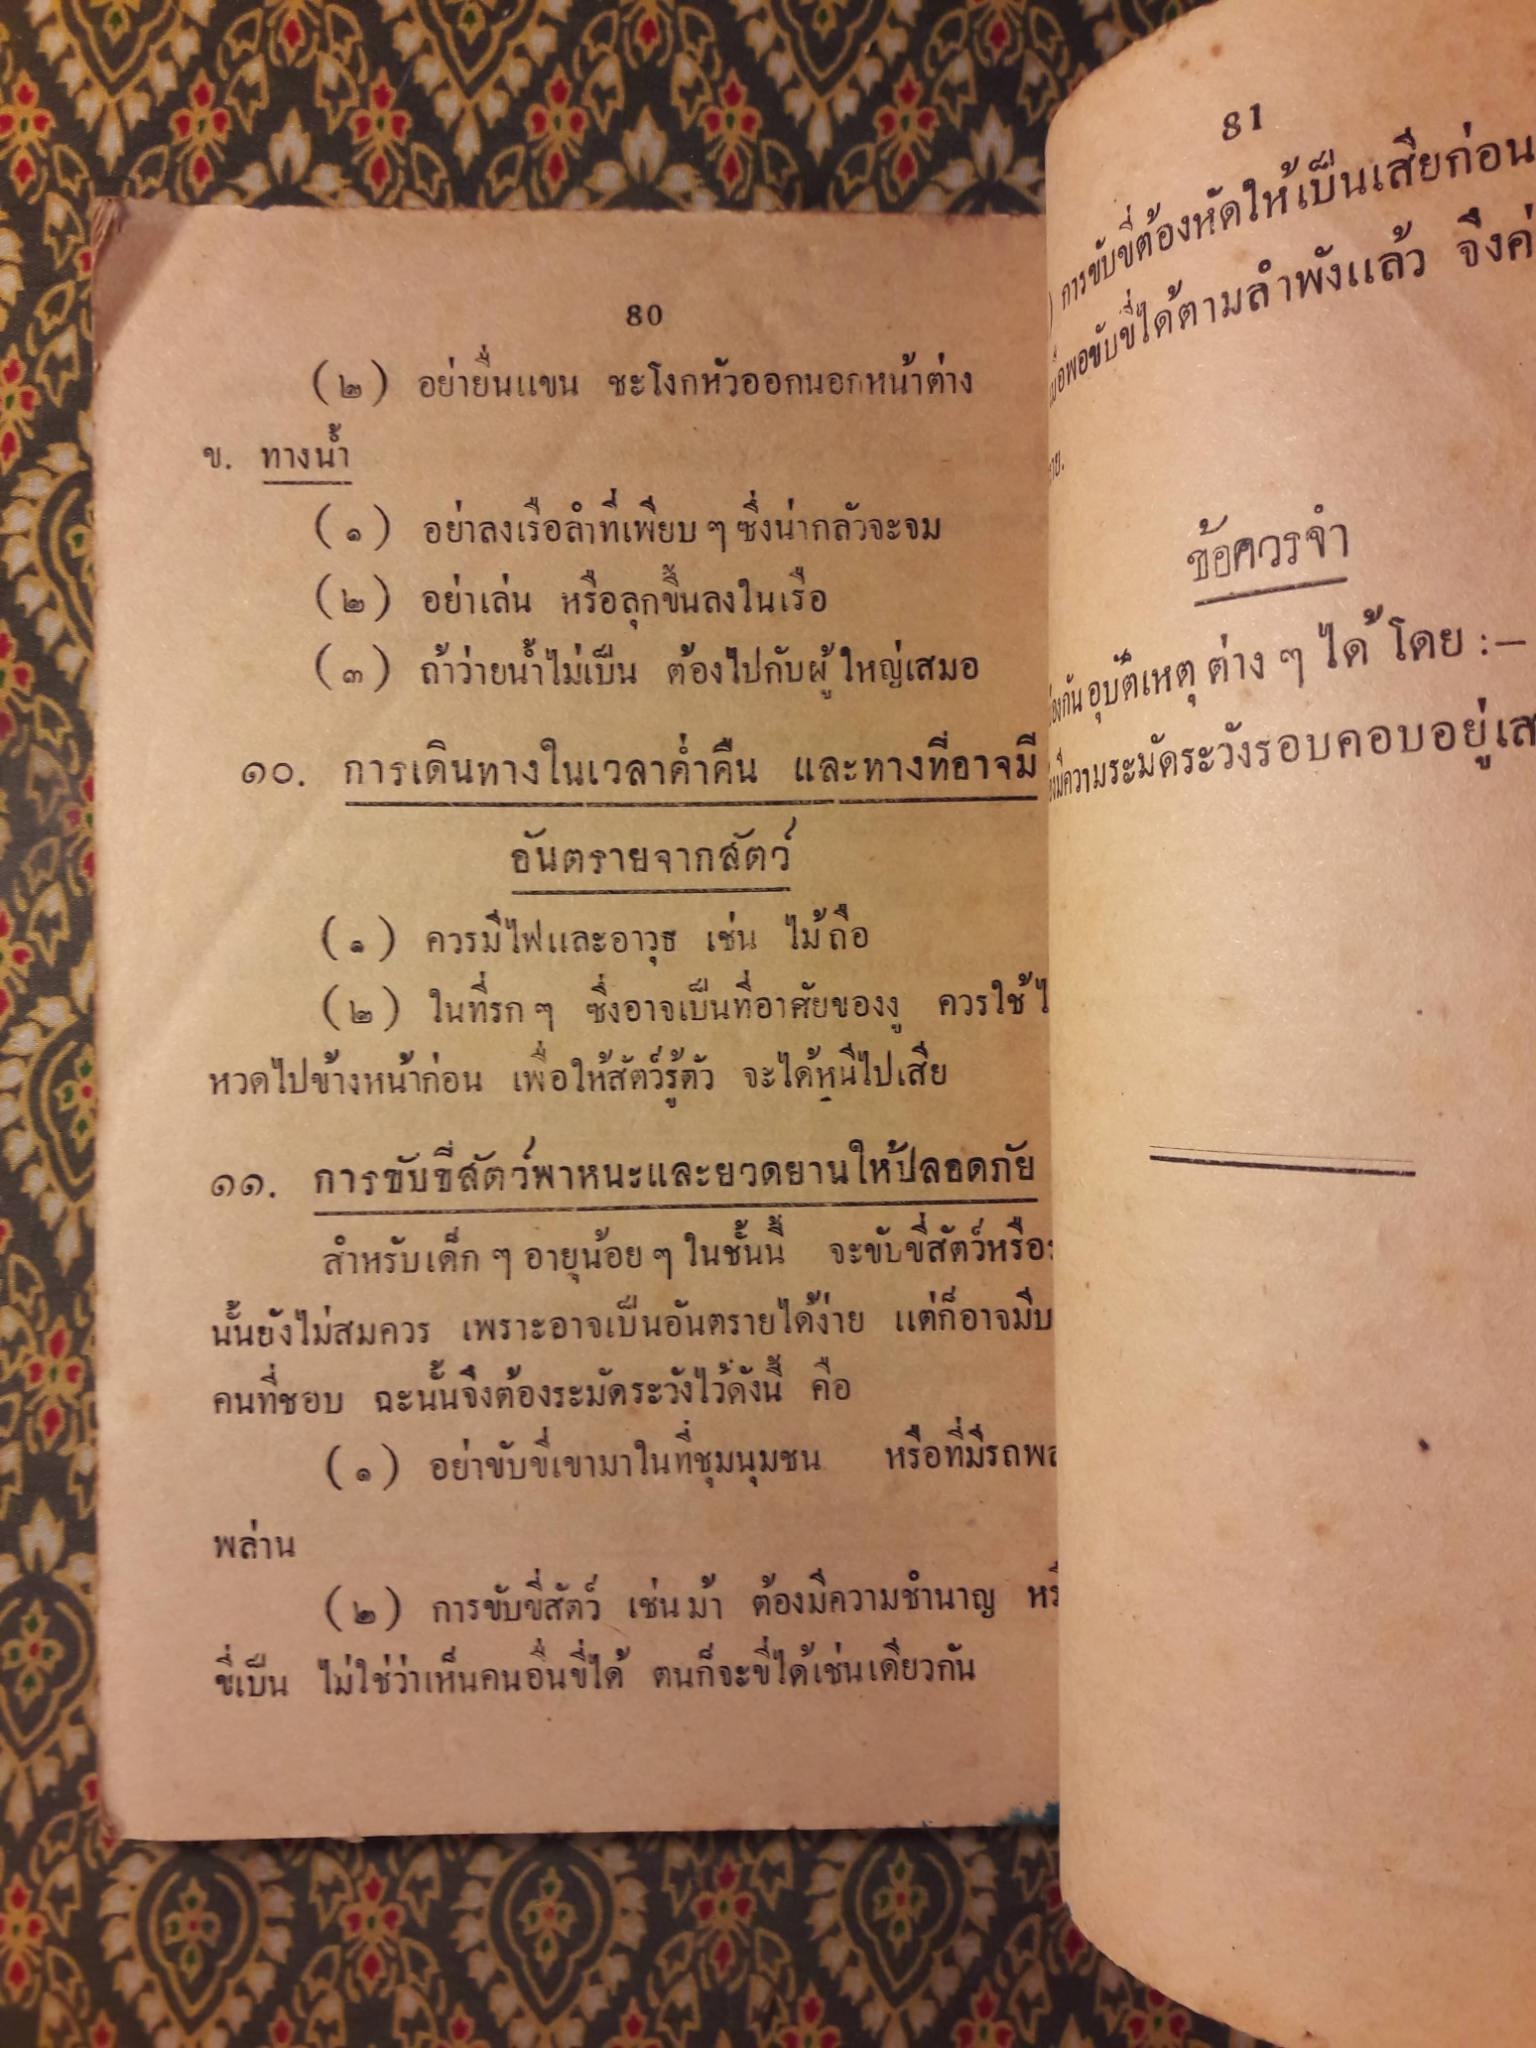 80
(๒) อย่ายื่นแขน ชะโงกหัวออกนอกหน้าต่าง
ข. ทางน้ำ
(๑) อย่าลงเรือลำที่เพียบ ๆ ซึ่งน่ากลัวจะจม
(๒) อย่าเล่น หรือลุกขึ้นลงในเรือ
(๓) ถ้าว่ายน้ำไม่เป็น ต้องไปกับผู้ใหญ่เสมอ
๑๐. การเดินทางในเวลาค่ำคืน และทางที่อาจมี
อันตรายจากสัตว์
(๑) ควรมีไฟและอาวุธ เช่น ไม้ถือ
(๒) ในที่รก ๆ ซึ่งอาจเป็นที่อาศัยของงู ควรใช้
หวดไปข้างหน้าก่อน เพื่อให้สัตว์รู้ตัว จะได้หนีไปเสีย
๑๑. การขับขี่สัตว์พาหนะและยวดยานให้ปลอดภัย
สำหรับเด็ก ๆ อายุน้อย ๆ ในชั้นนี้ จะขับขี่สัตว์หรือ
นั้นยังไม่สมควร เพราะอาจเป็นอันตรายได้ง่าย แต่ก็อาจมี
คนที่ชอบ ฉะนั้นจึงต้องระมัดระวังไว้ดังนี้ คือ
(๑) อย่าขับขี่เขามาในที่ชุมนุมชน หรือที่มีรถ
พล่าน
(๒) การขับขี่สัตว์ เช่นม้า ต้องมีความชำนาญ
ขี่เป็น ไม่ใช่ว่าเห็นคนอื่นขี่ได้ ตนก็จะขี่ได้เช่นเดียวกัน
81
) การขับขี่ต้องหัดให้เป็นเสียก่อน
พอขับขี่ได้ตามลำพังแล้ว จึง
ข้อควรจำ
อุบัติเหตุ ต่าง ๆ ได้ โดย :—
ความระมัดระวังรอบคอบอยู่